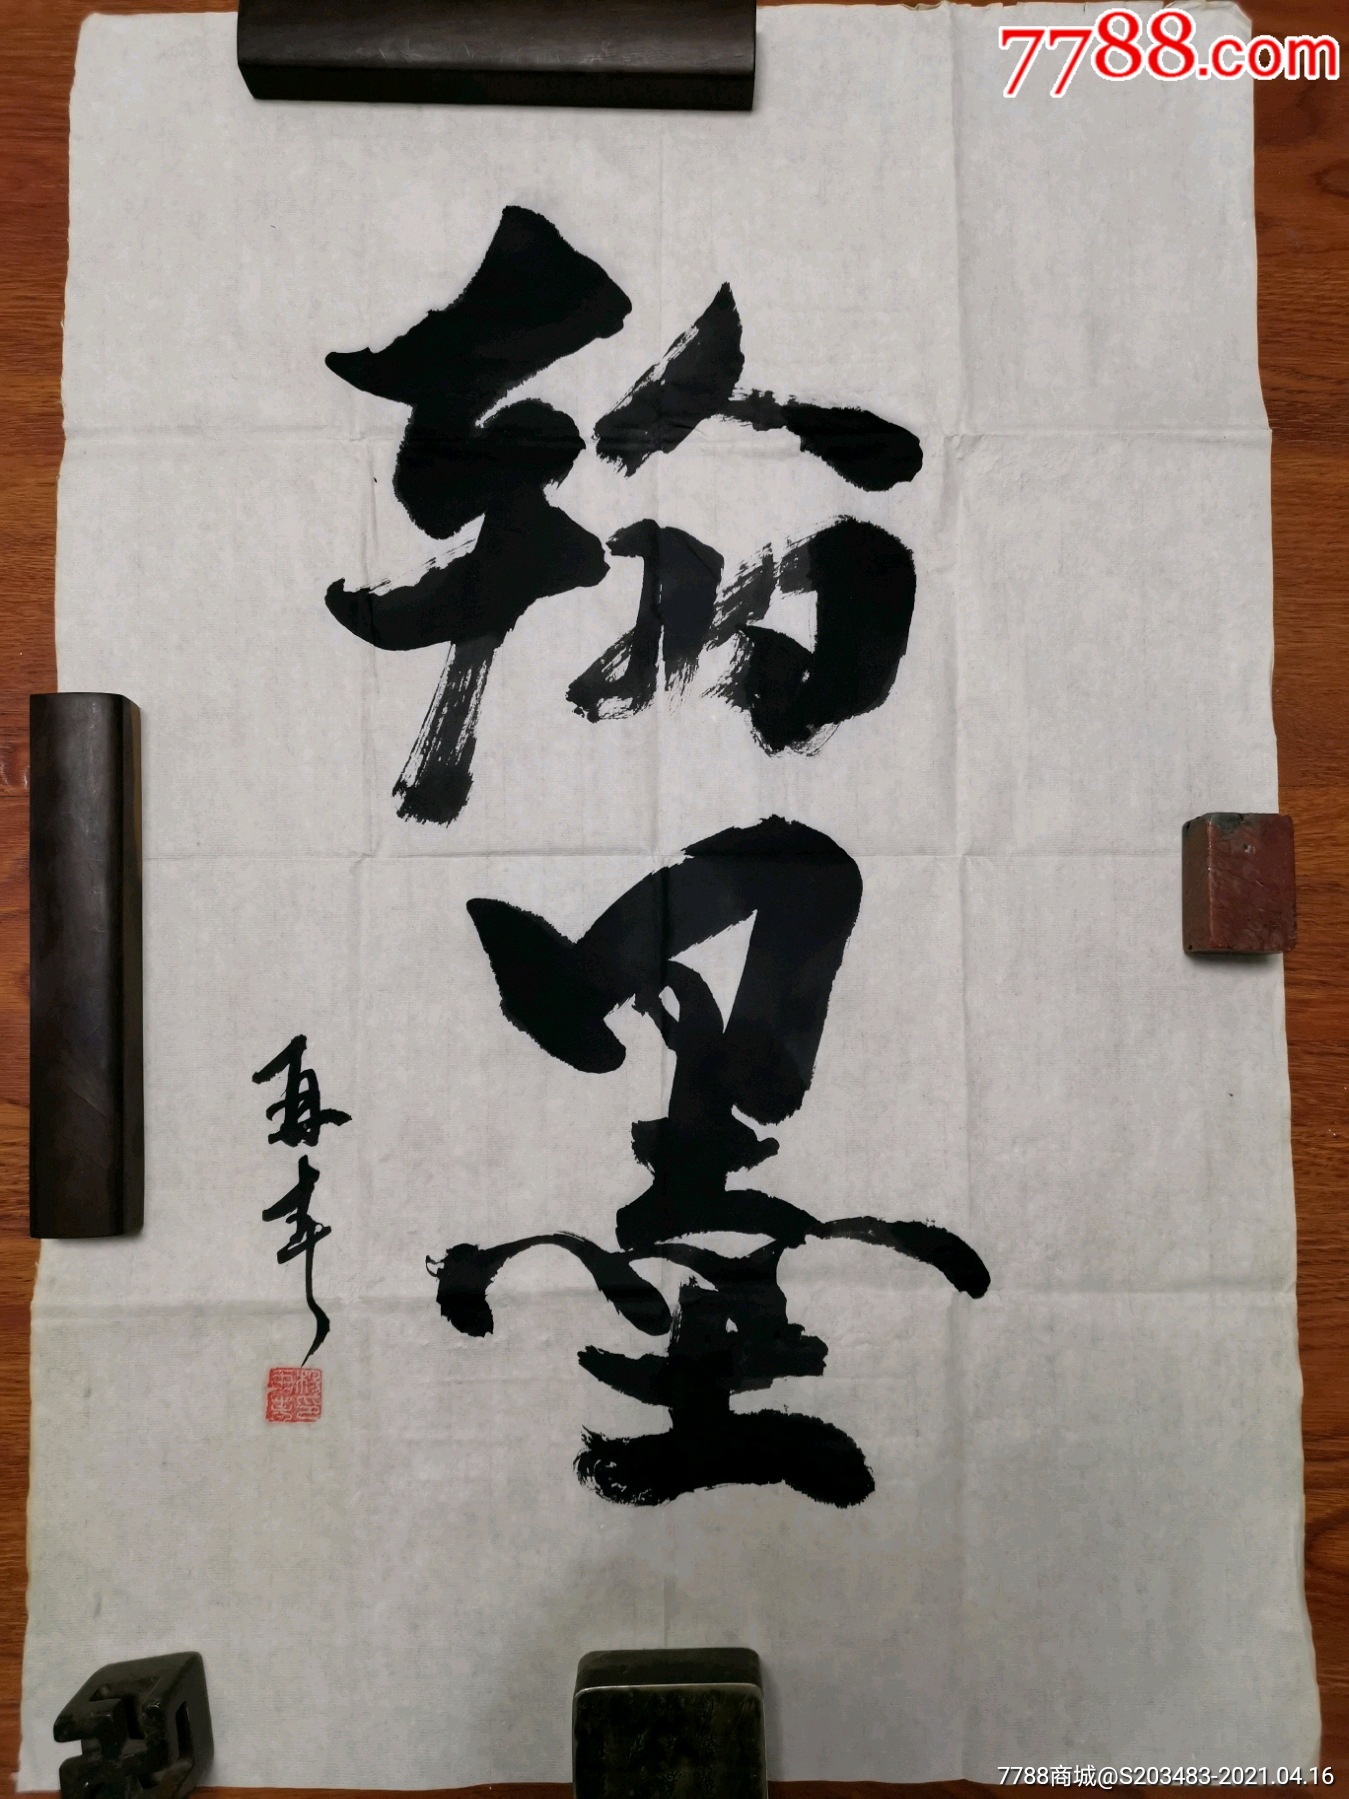 7788.com
翰墨
7788商城@S203483-2021.04.16